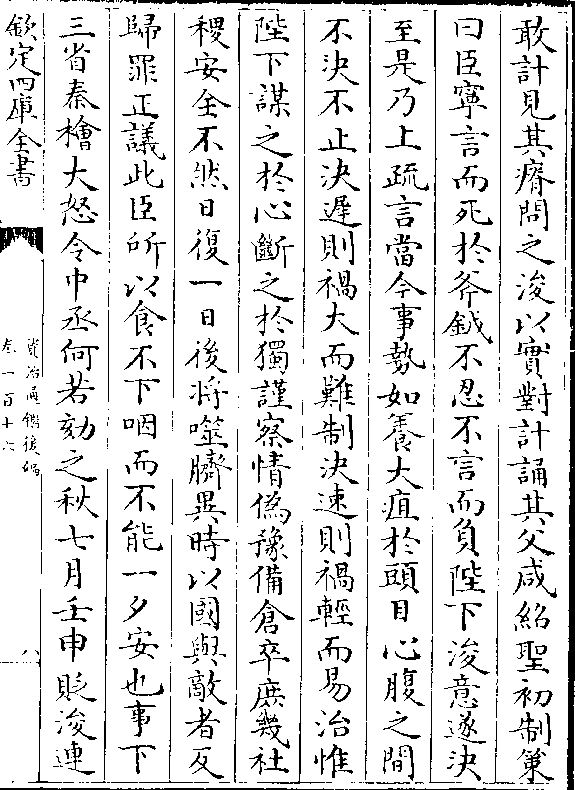 敢計見其瘠問之浚以實對計誦其父咸紹聖初制策
曰臣寧言而死於斧鉞不忍不言而負陛下浚意遂決
至是乃上疏言當今事勢如養大疽於頭目心腹之間
不決不止決遲則禍大而難制決速則禍輕而易治惟
陛下謀之於心斷之於獨謹察情偽豫備倉卒庶幾社
稷安全不然日復一日後將噬臍異時以國與敵者反
歸罪正議此臣所以食不下咽而不能一夕安也事下
三省秦檜大怒令中丞何若劾之秋七月壬申貶浚連
欽定四庫全書
資治通鑑後編
卷一百十六
八